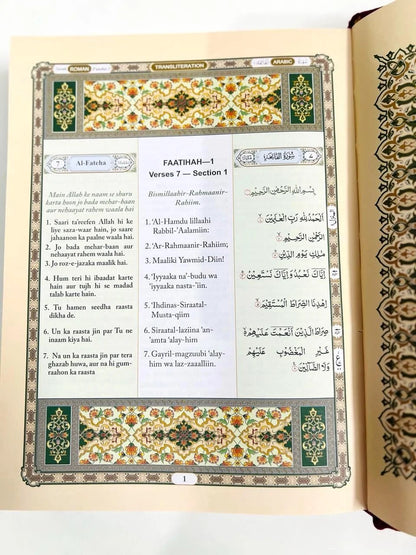 ROMAN
TRANSLITERATION
ARABIC
7
Al-Fateha
Main Allah ke naam se shuru
karta hoon jo bada mehar-baan aur
nehaayat rahem waala hai
1. Saari ta'reefen Allah hi ke
liye saza-waar hain, jo saare
jahaanon ka paalne waala hai.
2. Jo bada mehar-baan aur
nehaayat rahem waala hai.
3. Jo roz-e-jazaka maalik hai.
4. Hum teri hi ibaadat karte
hain aur tujh hi se madad
talab karte hain.
5. Tu hamen seedha raasta
dikha de.
6. Un ka raasta jin par Tu ne
inaam kiya hai.
7. Na un ka raasta jin par tera
ghazab huwa, aur na hi gum-
raahon ka raasta
FAATIHAH—1
Verses 7 — Section 1
Bismillaahir-Rahmaanir-
Rahiim.
1. 'Al-Hamdu lillaahi
Rabbil-'Aalamiin:
2. 'Ar-Rahmaanir-Rahiim;
3. Maaliki Yawmid-Diin!
4. 'Iyyaaka na'-budu wa
'iyyaaka nasta-'iin.
5. 'Ihdinas-Siraatal-
Musta-qiim
6. Siraatal-laziina 'an-
'amta 'alay-him
7. Gayril-magzuubi 'alay-
him wa laz-zaaalliin.
سُوْرَةُ الْفَاتِحَةِ
بِسْمِ اللهِ الرَّحْمٰنِ الرَّحِيْمِ
اَلْحَمْدُ لِلّٰهِ رَبِّ الْعٰلَمِيْنَ
الرَّحْمٰنِ الرَّحِيْمِ
مٰلِكِ يَوْمِ الدِّيْنِ
اِيَّاكَ نَعْبُدُ وَاِيَّاكَ نَسْتَعِيْنُ
اِهْدِنَا الصِّرَاطَ الْمُسْتَقِيْمَ
صِرَاطَ الَّذِيْنَ اَنْعَمْتَ عَلَيْهِمْ
غَيْرِ الْمَغْضُوْبِ عَلَيْهِمْ
وَلَا الضَّآلِّيْنَ
1